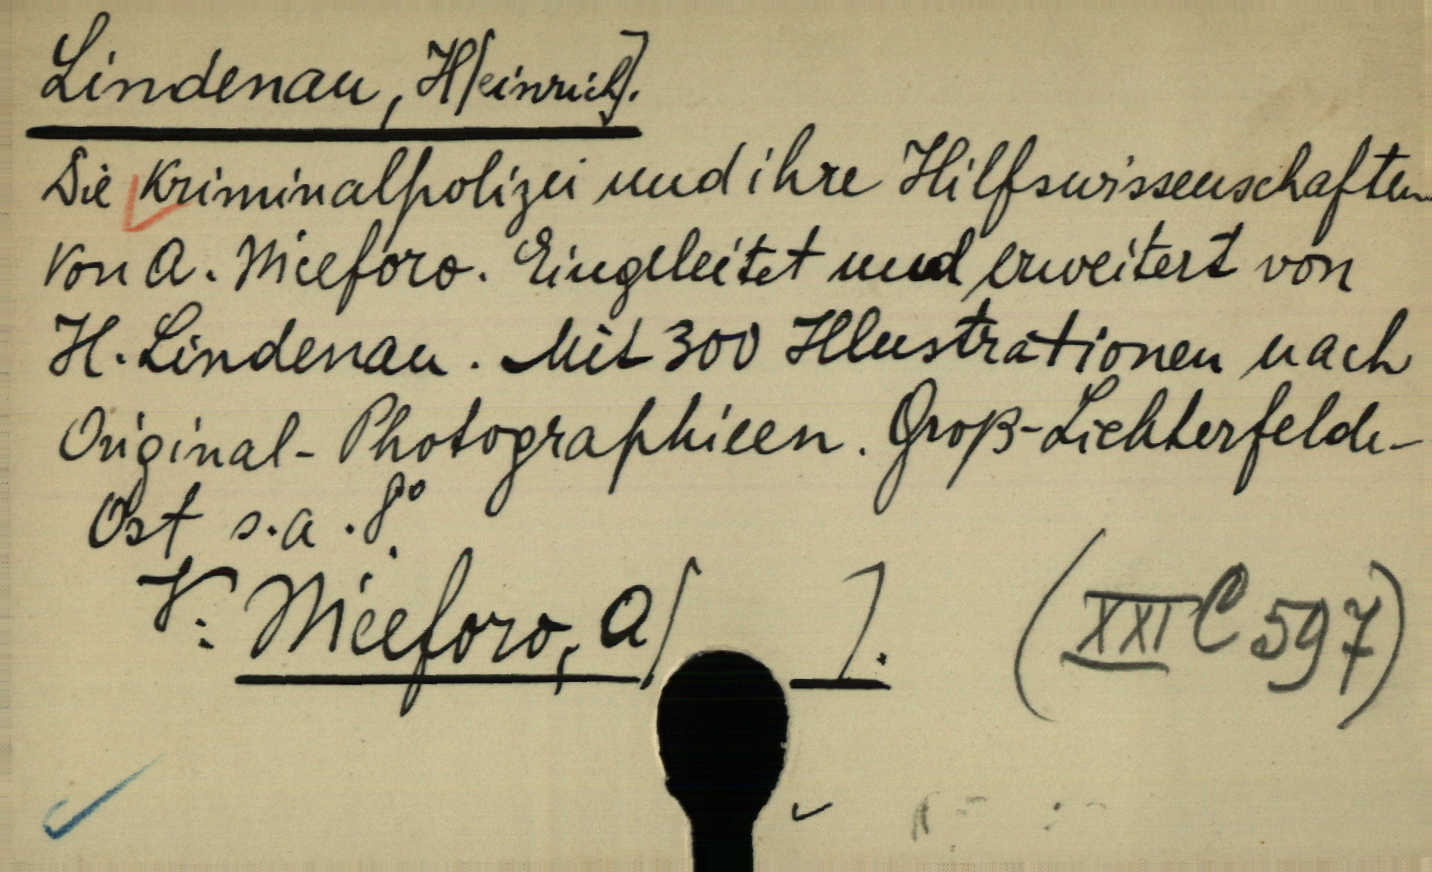 Lindenau, H[einrich].
Die Kriminalpolizei und ihre Hilfswissenschaften
Von A. Niceforo. Eingeleitet und erweitert von
H. Lindenau. Mit 300 Illustrationen nach
Original-Photographieen. Groß-Lichterfelde-
Ost s.a. 8°.
V: Niceforo, A[ ].
(XXI C 597)